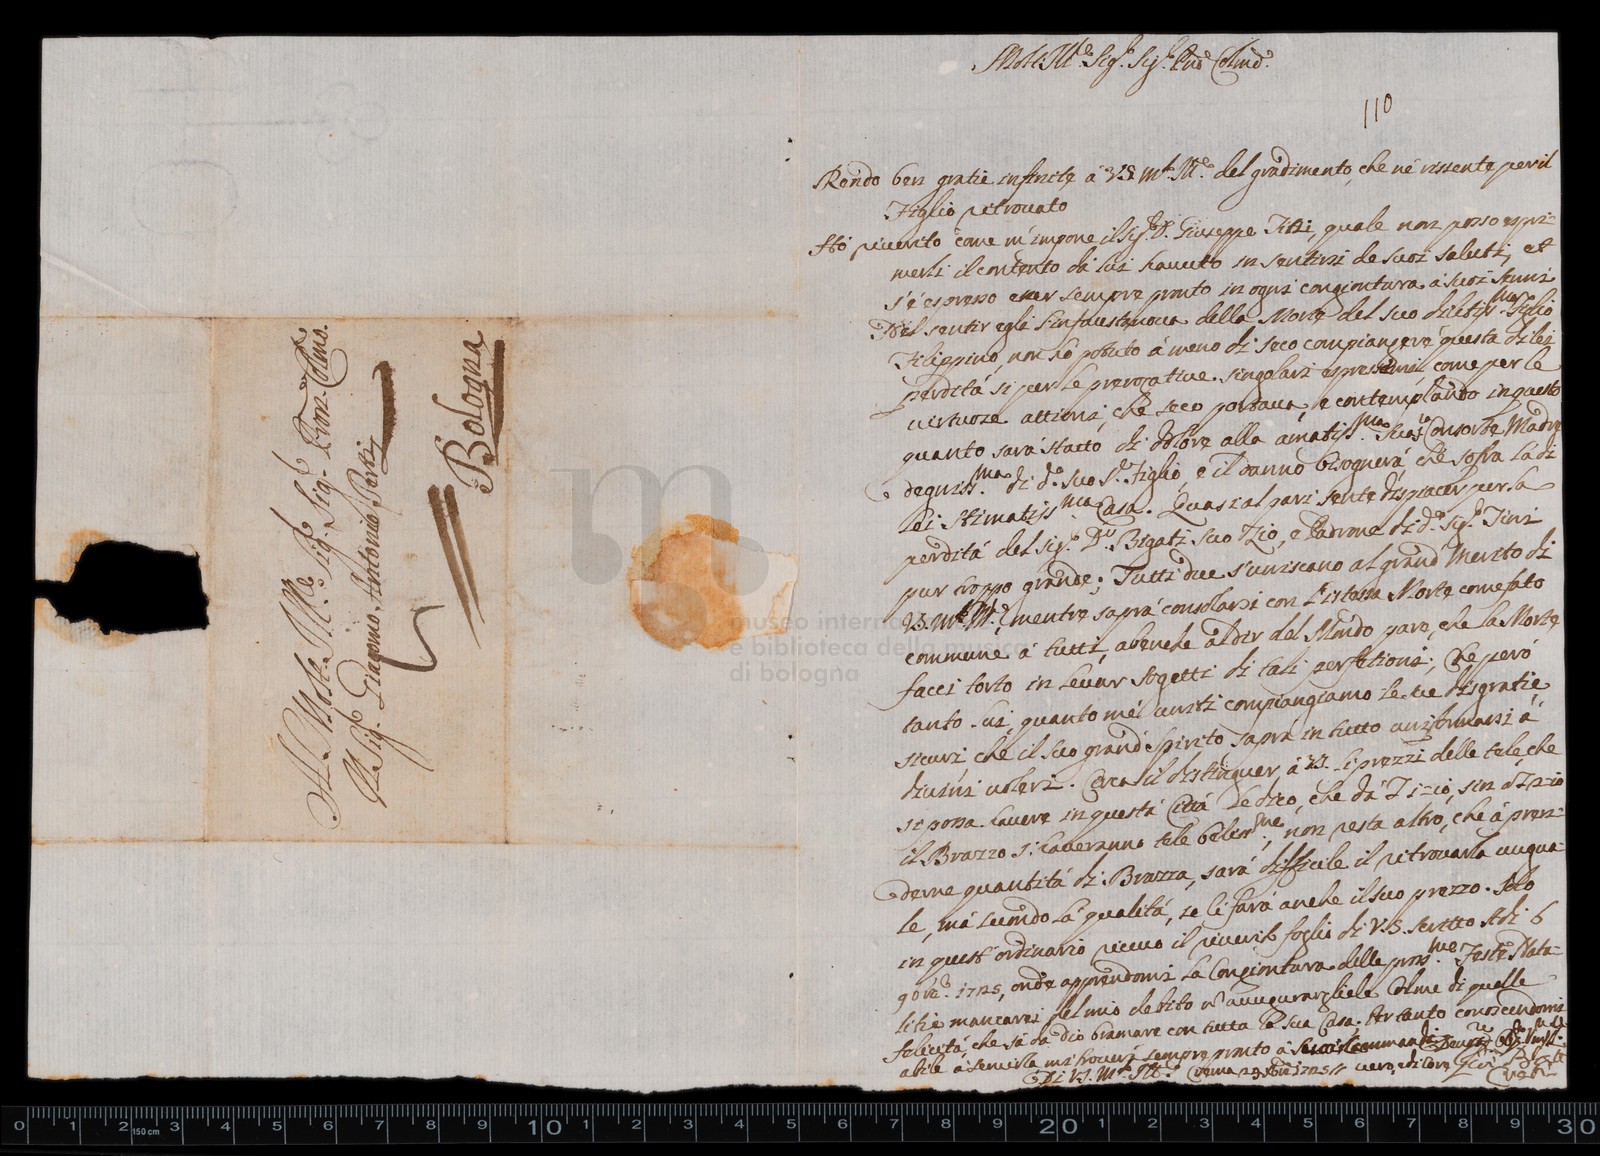 Molt' Ill.e Sig.r Sig.r Pró.e Colmó.
110
Rendo ben gratie infinite á V.S. Mt.o Ill.e del gradimento, che né rissente per il
Figlio ritrouato
Hó riuerito come m'impone il Sig.r D. Giuseppe Titsi, quale non posso espri-
merli il contento dá lui hauuto in sentirsi de suoi saluti, et
s'é espresso esser sempre pronto in ogni congiontura á suoi
Nel sentir egli l'infausta noua della Morte del suo diletiss.mo Figlio
Filippino, non hó potuto á meno di seco compiangere questa di lei
perdita si per le prerogatiue singolari come per le
uertuose attioni, che seco portaua, e contemplando in questo
quanto sará stato di dolore alla amatiss.ma Sua Consorte Madre
degniss.ma di d.o suo Figlio, e il danno bisognerá, che sofra la di
lei stimatiss.ma Casa. Quasi al pari sente dispiacer per la
perdita del Sig.r D.r Bigati suo Zio, e Padrone di d.o Sig.r Tini
pur troppo grande; Tutti due s'uniscano al grand Merito di
V.S. Mt.o Ill.e, mentre saprá consolarsi con l'istessa Morte come fato
commune á tutti, abenche al dir del Mondo pare, che la Morte
facci torto in leuar sogetti di tali perfetioni; Ché peró
tanto lui, quanto mé uniti compiangiamo le sue disgratie
sicuri che il suo grand Spirito saprá in tutto uniformarsi á
diuini uoleri. Circa il distinguer á V.S. li prezzi delle tele, che
si possa hauere in questa Cittá le dico, che dá
il Brazzo si haueranno tele; non resta altro, che á pren-
derne quantitá di Brazza, sará difficile il ritrouarla ugua-
le, má secondo la qualitá, se li fará anche il suo prezzo. Solo
in quest' ordinario riceuo il foglio di V.S. scritto Adi 6
9bre 1725, onde apprendomi la Congiontura delle pross.me Feste Nata-
litie mancarei del mio debito n' augurargliele Colme di quelle
felicitá, che sá dá Dio bramare con tutta la Sua Casa. Per tanto conoscendomi
abile á seruirla mi trouerá sempre pronto á suoi commandi
Di V.S. Mt.o Ill.e 1725
Al Molto Ill.re Sig.r Sig.r Pron. Colmo.
Il Sig.r Giacomo Antonio Perti
Bologna
museo internazionale
e biblioteca della musica
di bologna
0 1 2 3 4 5 6 7 8 9 10 1 2 3 4 5 6 7 8 9 20 1 2 3 4 5 6 7 8 9 30
150 cm